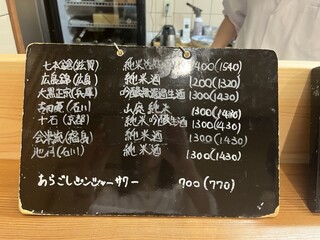 七本鎗(滋賀) 純米 1400(1540)
広島錦(広島) 純米酒 1200(1320)
大黒正宗(兵庫) 吟醸無濾過生酒 1300(1430)
吉田蔵(石川) 山廃純米 1300(1430)
十石(京都) 純米吟醸生酒 1300(1430)
会津娘(福島) 純米酒 1300(1430)
池月(石川) 純米酒 1300(1430)
あらごしジンジャーサワー 700(770)